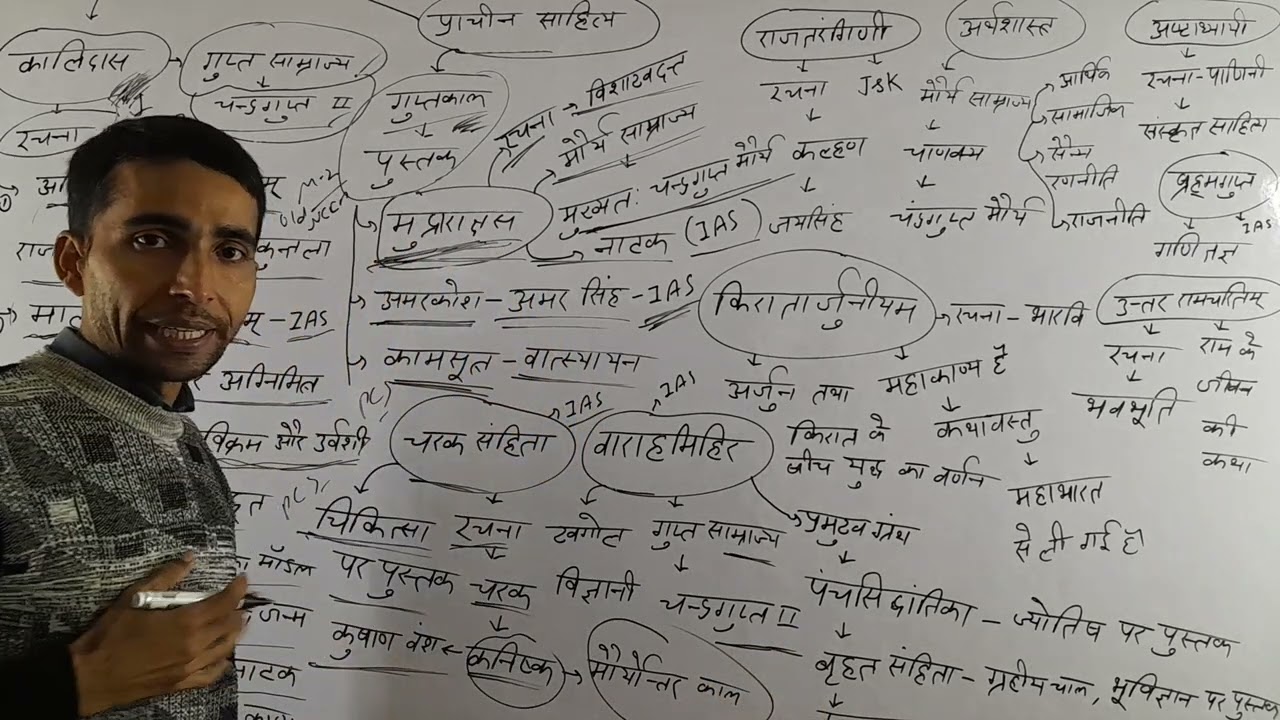 प्राचीन साहित्य
कालिदास
गुप्त साम्राज्य
चन्द्रगुप्त II
रचना
कुन्तला
IAS
अग्निमित
विक्रम और उर्वशी
मॉडल
जन्म
नाटक
गुप्तकाल
पुस्तक
रचना → विशाखदत्त
मौर्य साम्राज्य
मुद्राराक्षस
मुख्यत: चन्द्रगुप्त मौर्य
नाटक (IAS)
अमरकोश - अमर सिंह - IAS
कामसूत - वात्स्यायन
राजतरंगिणी
रचना J&K
कल्हण
जयसिंह
अर्थशास्त
मौर्य साम्राज्य
चाणक्य
चंद्रगुप्त मौर्य
आर्थिक
सामाजिक
सैन्य
रणनीति
राजनीति
अष्टाध्यायी
रचना - पाणिनी
संस्कृत साहिता
ब्रहमगुप्त
IAS
गणितज्ञ
किरातार्जुनीयम
रचना - भारवि
अर्जुन तथा
किरात के
बीच युद्ध का वर्णन
महाकाव्य है
कथावस्तु
महाभारत
से ली गई है
उत्तर रामचरितम्
रचना
भवभूति
राम के
जीवन
की
कथा
चरक संहिता
IAS
चिकित्सा
पर पुस्तक
रचना
चरक
कनिष्क
कुषाण वंश
मौर्योत्तर काल
वाराहमिहिर
IAS
खगोल
विज्ञानी
गुप्त साम्राज्य
चन्द्रगुप्त II
प्रमुख ग्रंथ
पंचसिद्धांतिका - ज्योतिष पर पुस्तक
बृहत संहिता - ग्रहीय चाल, भूविज्ञान पर पुस्तक